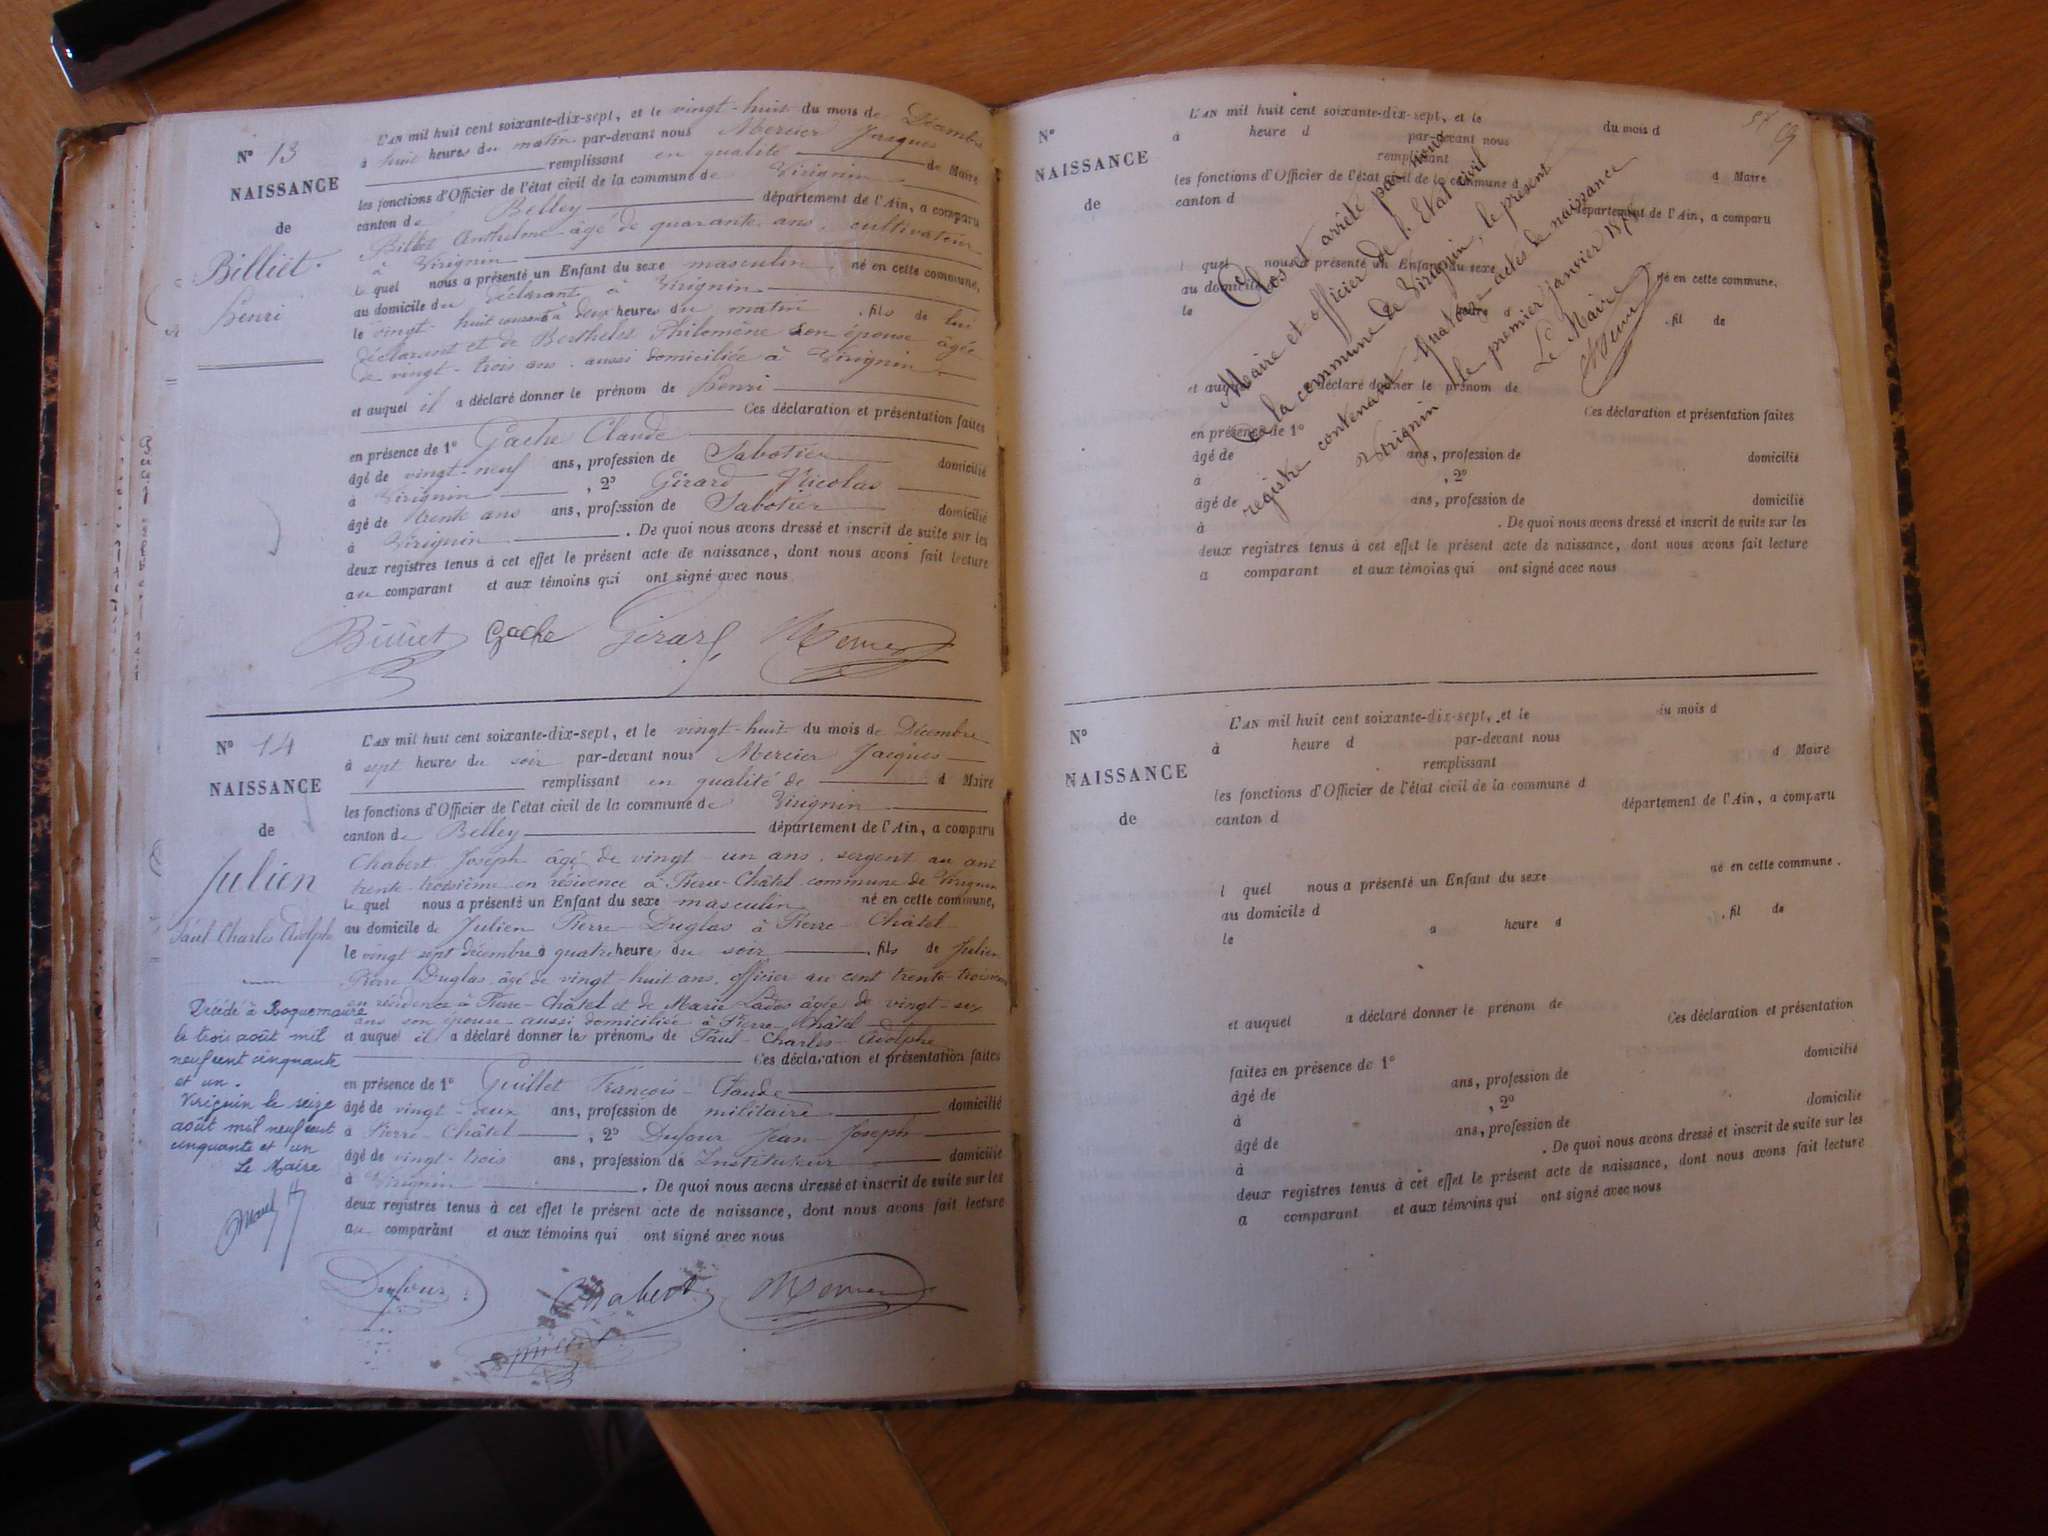 N° 13
NAISSANCE
de
Billiet
Henri
L'AN mil huit cent soixante-dix-sept, et le vingt-huit du mois de Décembre
à huit heures du matin par-devant nous Mercier Jacques
remplissant en qualité de Maire
les fonctions d'Officier de l'état civil de la commune de Virignin
canton de Belley département de l'Ain, a comparu
Billet Anthelme âgé de quarante ans, cultivateur
à Virignin
le quel nous a présenté un Enfant du sexe masculin né en cette commune,
au domicile du déclarant à Virignin
le vingt-huit courant à deux heures du matin, fils de lui
déclarant et de Berthelet Philomène son épouse âgée
de vingt-trois ans aussi domiciliée à Virignin
et auquel il a déclaré donner le prénom de Henri
Ces déclaration et présentation faites
en présence de 1° Gache Claude
âgé de vingt-neuf ans, profession de Sabotier domicilié
à Virignin, 2° Girard Nicolas
âgé de trente ans ans, profession de Sabotier domicilié
à Virignin. De quoi nous avons dressé et inscrit de suite sur les
deux registres tenus à cet effet le présent acte de naissance, dont nous avons fait lecture
au comparant et aux témoins qui ont signé avec nous
Billiet Gache Girard Mercier
N° 14
NAISSANCE
de
Julien
Paul Charles Adolphe
L'AN mil huit cent soixante-dix-sept, et le vingt-huit du mois de Décembre
à sept heures du soir par-devant nous Mercier Jacques
remplissant en qualité de d Maire
les fonctions d'Officier de l'état civil de la commune de Virignin
canton de Belley département de l'Ain, a comparu
Chabert Joseph âgé de vingt-un ans, sergent au cent
trente-troisième en résidence à Pierre-Châtel commune de Virignin
le quel nous a présenté un Enfant du sexe masculin né en cette commune,
au domicile de Julien Pierre Duglas à Pierre-Châtel
le vingt sept décembre à quatre heure du soir, fils de Julien
Pierre Duglas, âgé de vingt-huit ans, officier au cent trente-troisième
en résidence à Pierre-Châtel et de Marie âgée de vingt-six
ans son épouse aussi domiciliée à Pierre-Châtel
et auquel il a déclaré donner les prénoms de Paul-Charles-Adolphe
Ces déclaration et présentation faites
en présence de 1° Guillet François-Claude
âgé de vingt-deux ans, profession de militaire domicilié
à Pierre-Châtel, 2° Dufour Jean-Joseph
âgé de vingt-trois ans, profession de Instituteur domicilié
à Virignin. De quoi nous avons dressé et inscrit de suite sur les
deux registres tenus à cet effet le présent acte de naissance, dont nous avons fait lecture
au comparant et aux témoins qui ont signé avec nous
Décédé à Roquemaure
le trois août mil
neuf cent cinquante
et un.
Virignin le seize
août mil neuf cent
cinquante et un
Le Maire
Dufour Chabert Mercier
Guillet
N°
NAISSANCE
de
L'AN mil huit cent soixante-dix-sept, et le du mois d
à heure d par-devant nous
remplissant d Maire
les fonctions d'Officier de l'état civil de la commune d
canton d département de l'Ain, a comparu
l quel nous a présenté un Enfant du sexe né en cette commune,
au domicile d
le à heure d , fil de
et auquel a déclaré donner le prénom de
Ces déclaration et présentation faites
en présence de 1°
âgé de ans, profession de domicilié
à , 2°
âgé de ans, profession de domicilié
à . De quoi nous avons dressé et inscrit de suite sur les
deux registres tenus à cet effet le présent acte de naissance, dont nous avons fait lecture
a comparant et aux témoins qui ont signé avec nous
Clos et arrêté par nous
Maire et officier de l'Etat civil
de la commune de Virignin, le présent
registre contenant quatorze actes de naissance
Virignin le premier janvier 1878
Le Maire
Mercier
N°
NAISSANCE
de
L'AN mil huit cent soixante-dix-sept, et le du mois d
à heure d par-devant nous
remplissant d Maire
les fonctions d'Officier de l'état civil de la commune d
canton d département de l'Ain, a comparu
l quel nous a présenté un Enfant du sexe né en cette commune.
au domicile d
le à heure d , fil de
et auquel a déclaré donner le prénom de
Ces déclaration et présentation
faites en présence de 1° domicilié
âgé de ans, profession de
à , 2° domicilié
âgé de ans, profession de
à . De quoi nous avons dressé et inscrit de suite sur les
deux registres tenus à cet effet le présent acte de naissance, dont nous avons fait lecture
a comparant et aux témoins qui ont signé avec nous